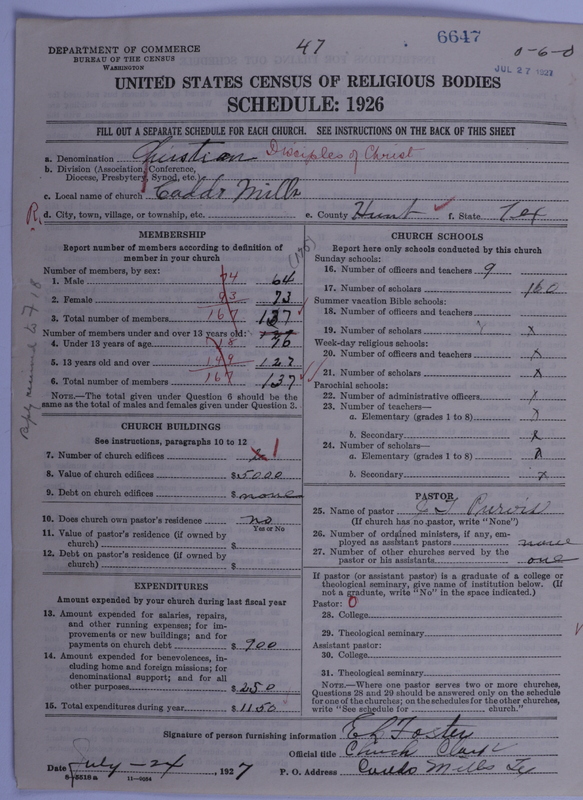 47
6647
0-6-0
JUL 27 1927
DEPARTMENT OF COMMERCE
BUREAU OF THE CENSUS
WASHINGTON
UNITED STATES CENSUS OF RELIGIOUS BODIES
SCHEDULE: 1926
FILL OUT A SEPARATE SCHEDULE FOR EACH CHURCH. SEE INSTRUCTIONS ON THE BACK OF THIS SHEET
a. Denomination Christian Disciples of Christ
b. Division (Association, Conference,
Diocese, Presbytery, Synod, etc.)
c. Local name of church Caddo Mills
R. d. City, town, village, or township, etc. e. County Hunt f. State Tex
MEMBERSHIP
Report number of members according to definition of
member in your church
Number of members, by sex:
1. Male 74 64
2. Female 93 73
3. Total number of members 167 137
Number of members under and over 13 years old:
4. Under 13 years of age 18
5. 13 years old and over 149 127
6. Total number of members 167 137
NOTE.—The total given under Question 6 should be the
same as the total of males and females given under Question 3.
CHURCH BUILDINGS
See instructions, paragraphs 10 to 12
7. Number of church edifices 1
8. Value of church edifices $5000
9. Debt on church edifices $none
10. Does church own pastor's residence no
Yes or No
11. Value of pastor's residence (if owned by
church) $
12. Debt on pastor's residence (if owned by
church) $
EXPENDITURES
Amount expended by your church during last fiscal year
13. Amount expended for salaries, repairs,
and other running expenses; for im-
provements or new buildings; and for
payments on church debt $900
14. Amount expended for benevolences, in-
cluding home and foreign missions; for
denominational support; and for all
other purposes $250
15. Total expenditures during year $1150
CHURCH SCHOOLS
Report here only schools conducted by this church
Sunday schools:
16. Number of officers and teachers 9
17. Number of scholars 160
Summer vacation Bible schools:
18. Number of officers and teachers
19. Number of scholars x
Week-day religious schools:
20. Number of officers and teachers x
21. Number of scholars x
Parochial schools:
22. Number of administrative officers x
23. Number of teachers—
a. Elementary (grades 1 to 8) x
b. Secondary x
24. Number of scholars—
a. Elementary (grades 1 to 8) x
b. Secondary x
PASTOR
25. Name of pastor Purvis
(If church has no pastor, write "None")
26. Number of ordained ministers, if any, em-
ployed as assistant pastors none
27. Number of other churches served by the
pastor or his assistants one
If pastor (or assistant pastor) is a graduate of a college or
theological seminary, give name of institution below. (If
not a graduate, write "No" in the space indicated.)
Pastor: 0
28. College
29. Theological seminary
Assistant pastor:
30. College
31. Theological seminary
NOTE.—Where one pastor serves two or more churches,
Questions 28 and 29 should be answered only on the schedule
for one of the churches; on the schedules for the other churches,
write "See schedule for church."
Signature of person furnishing information E L Foster
Official title Church Clerk
Date July-24, 1927 P. O. Address Caddo Mills Tx